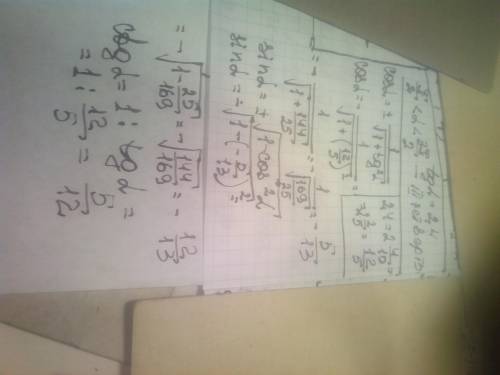 tgα = 2,4
π < α < 3π/2 — III четверть
cosα = ± 1/√(1+tg²α)
2,4 = 2 4/10 = 2 2/5 = 12/5
cosα = - 1/√(1+(12/5)²) =
= - 1/√(1+144/25) = - 1/√(169/25) = - 5/13
sinα = ± √(1-cos²α)
sinα = - √(1-(5/13)²) =
= - √(1-25/169) = - √(144/169) = - 12/13
ctgα = 1 : tgα =
= 1 : 12/5 = 5/12